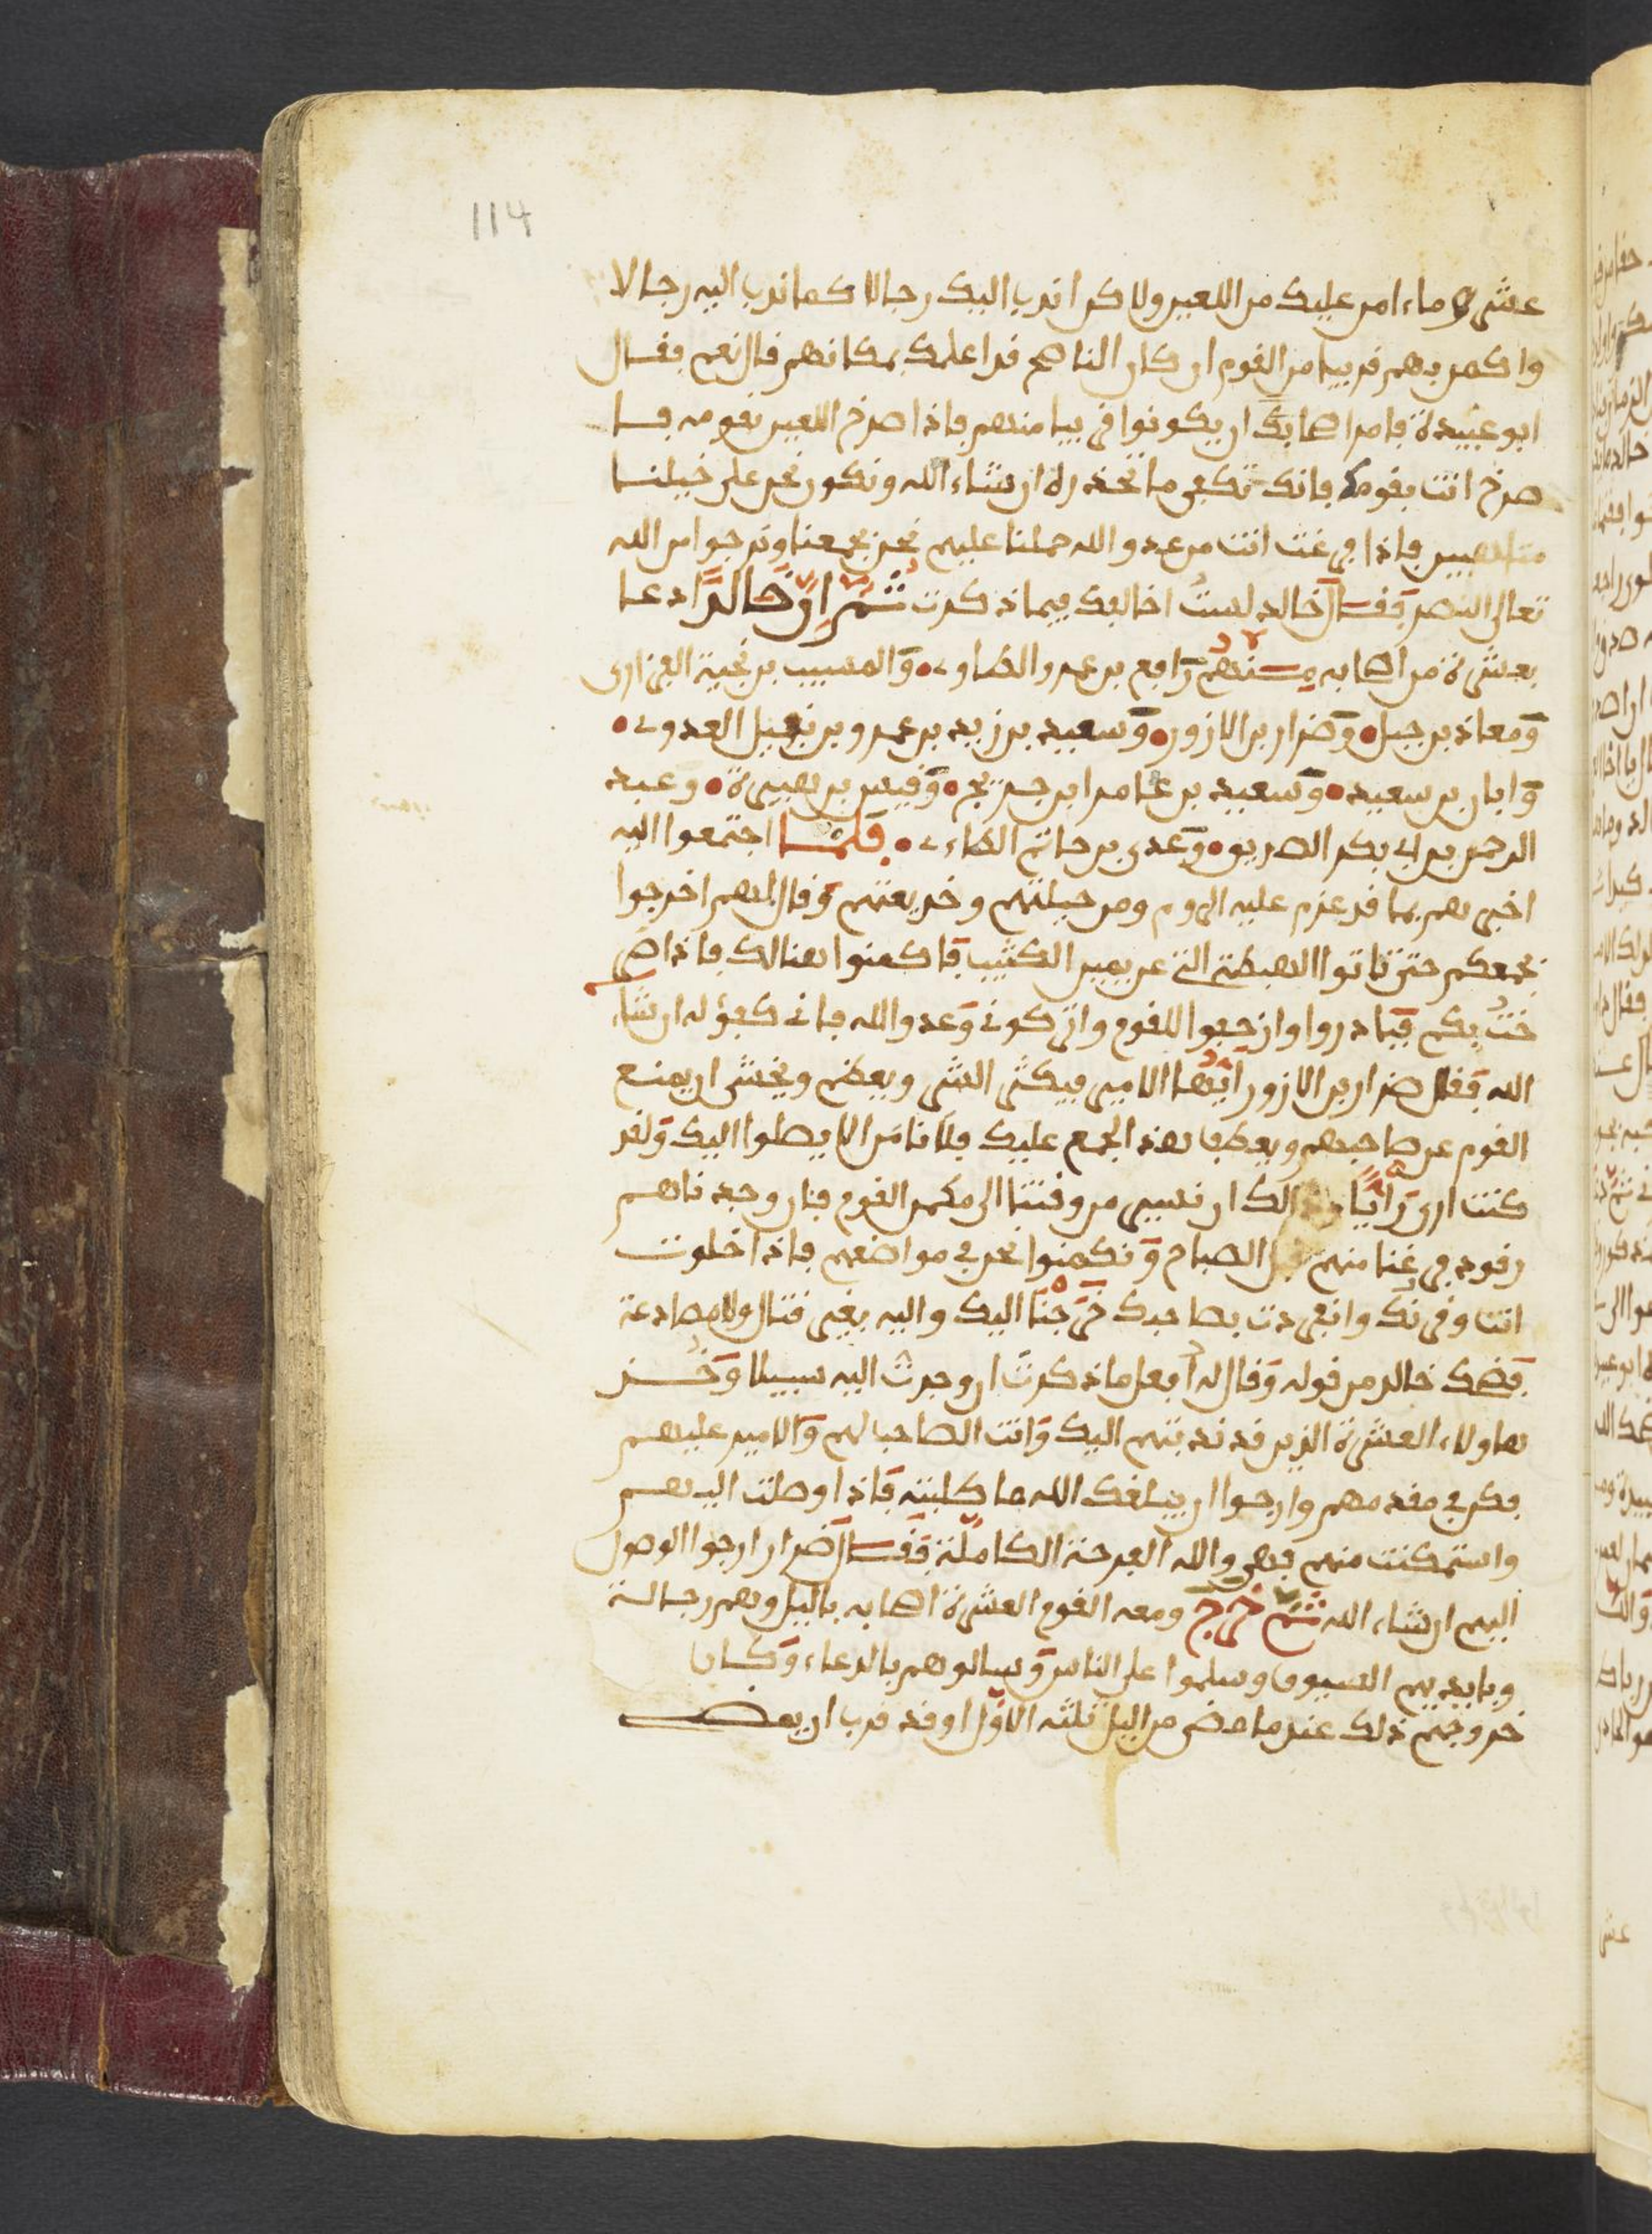 114
عشرة وما امن عليك من اللعين ولاكن اندب اليك رجالا كما ندب اليه رجالا
واكمن بهم قريبا من القوم ان كان الناصح قد اعلمك بمكانهم قال نعم فقال
ابو عبيدة فامر اصحابك ان يكونوا قريبا منهم فاذا صرخ اللعين بقومه فسا
صرخ انت بقومك فانك تكفى ما تحذره ان شاء الله ونكون نحن على خيلنا
متاهبين فاذا فرغت انت من عدو الله حملنا عليهم نحن بجمعنا ونرجوا من الله
تعالى النصر فقال خالد لست اخالفك فيما ذكرت ثم ان خالدا دعا
بعشرة من اصحابه منهم رافع بن عمرو الطاوي والمسيب بن نجية الفزاري
ومعاذ بن جبل وضرار بن الازور وسعيد بن زيد بن عمرو بن نفيل العدوي
وابان بن سعيد وسعيد بن عامر ابن جريج وقيس بن هبيرة وعبد
الرحمن بن ابي بكر الصديق وعدي بن حاتم الطاءي فلما اجتمعوا اليه
اخبرهم بما قد عزم عليه الروم ومن حيلتهم وخديعتهم وقال لهم اخرجوا
بجمعكم حتى تاتوا الهبطة التي عن يمين الكثيب فاكمنوا هنالك فاذا صر
خت بكم فبادروا وازحفوا للقوم واتركوني وعدو الله فاني كفؤ له ان شاء
الله فقال ضرار بن الازور ايها الامير فيكثر الشر ويعظم ونخشى ان يمنع
القوم عن صاحبهم ويعطف هذا الجمع عليك فلا نامن الا يصلوا اليك ولقد
كنت ارى رايا الك ان نسير من وقتنا الى مكمن القوم فان وجدناهم
رقود فرغنا منهم قبل الصباح ونكمنوا نحن في مواضعهم فاذا خلوت
انت وقرنك وانفردت بصاحبك خرجنا اليك واليه بغير قتال ولا مصادعة
فضحك خالد من قوله وقال له افعل ما ذكرت ان وجدت اليه سبيلا وخذ
هاولاء العشرة الذين قد ندبتهم اليك وانت الصاحب لهم والامير عليهم
فكن في مقدمهم وارجوا ان يبلغك الله ما طلبته فاذا وصلت اليهم
واستمكنت منهم فهي والله الفرحة الكاملة فقال ضرار ارجوا الوصول
اليهم ان شاء الله ثم خرج ومعه القوم العشرة اصحابه باليل وهم رجالة
وبايديهم السيوف وسلموا على الناس وسالوهم بالدعاء وكان
خروجهم ذلك عندما مضى من اليل ثلثه الاول وقد قرب ان يمضـ